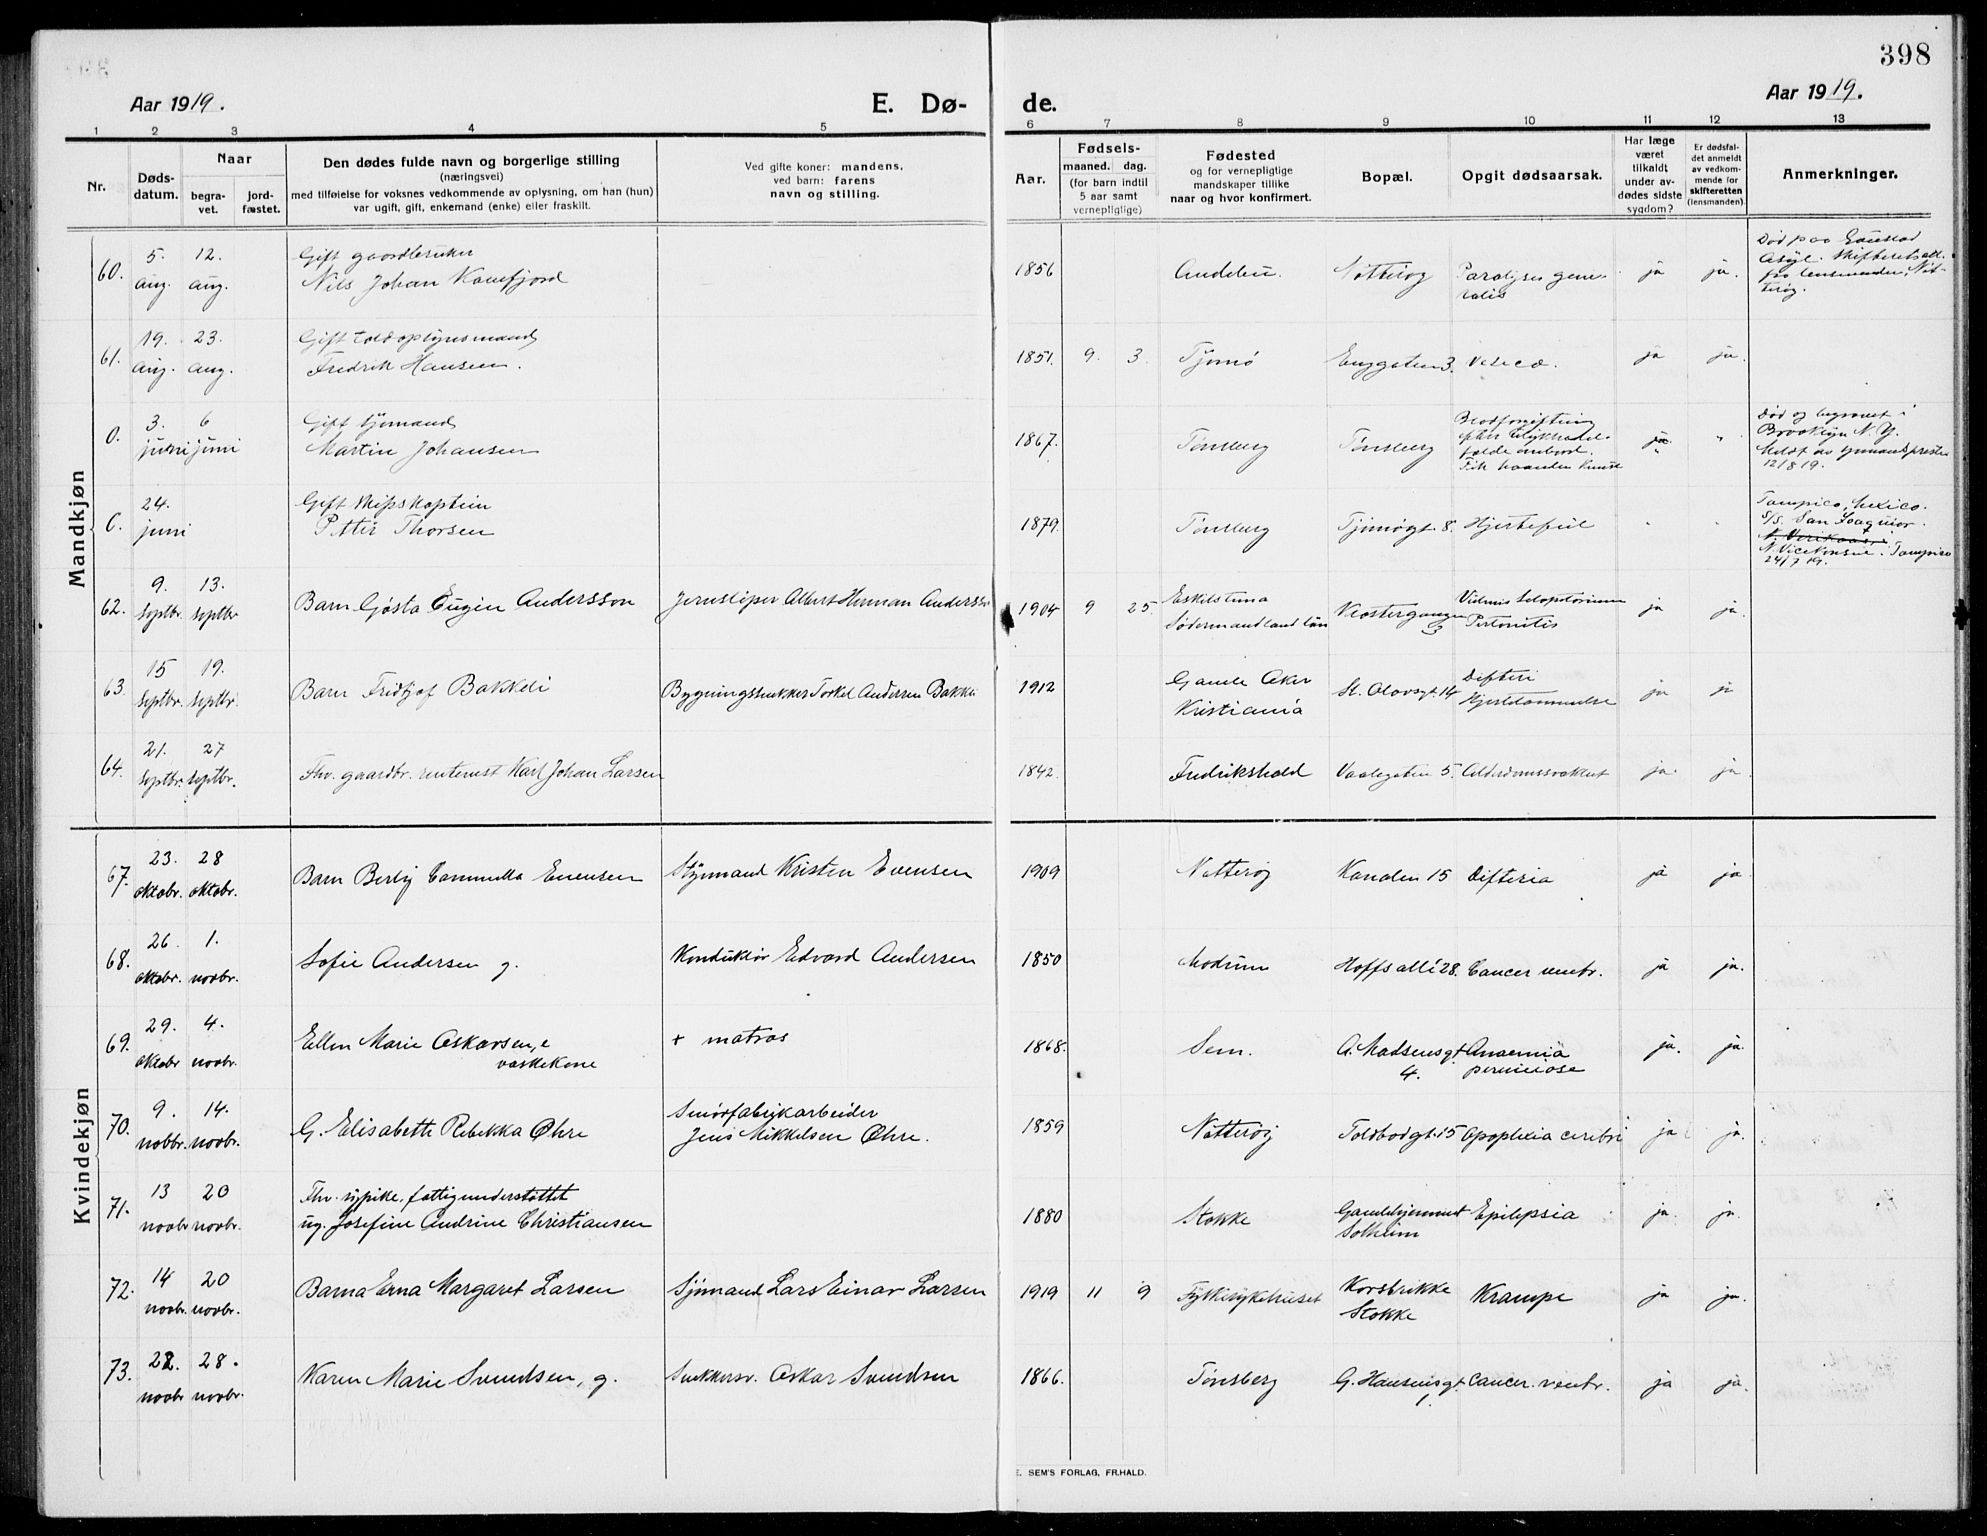 398
Aar 1919.
E. Dø-
de.
Aar 1919.
1 2 3 4 5 6 7 8 9 10 11 12 13
Nr.
Døds-
datum.
Naar
begra-
vet.
jord-
fæstet.
Den dødes fulde navn og borgerlige stilling
(næringsvei)
med tilføielse for voksnes vedkommende av oplysning, om han (hun)
var ugift, gift, enkemand (enke) eller fraskilt.
Ved gifte koner: mandens,
ved barn: farens
navn og stilling.
Aar.
Fødsels-
maaned. dag.
(for barn indtil
5 aar samt
vernepligtige)
Fødested
og for vernepligtige
mandskaper tillike
naar og hvor konfirmert.
Bopæl.
Opgit dødsaarsak.
Har læge
været
tilkaldt
under av-
dødes sidste
sygdom?
Er dødsfal-
det anmeldt
av vedkom-
mende for
skifteretten
(lensmanden).
Anmerkninger.
Mandkjøn
60. 5. aug. 12. aug.
Gift gaardbruker
Nils Johan
1856 Nøtterøy
Paralyses gene-
ralis
ja ja.
Død paa
Asyl.
fra lensmanden, Nøt-
terøy.
61. 19. aug. 23. aug.
Gift toldopsynsmand
Fredrik Hansen.
1851. 9. 3. Tjømø Enggaten 3. ja ja.
0. 3. juni 6 juni
Gift sjømand
Martin Johansen
1867. Tønsberg Tønsberg
Blodforgiftning
ja "
Død og begravet i
Brooklyn N.Y.
Meldt av sjømandsprest
12/8 19.
0. 24. juni
Gift skipskaptein
Petter Thorsen
1879. Tønsberg Tjømøgt. 8. Hjertefeil " "
Tampico, Mexico.
S/S. San Joaquin.
N. Vicekonsul i Tampico
24/7 19.
62. 9. septbr. 13. septbr
Barn Gösta Eugen Andersson
Albert Herman Andersso
1904 9 25.
Eskilstuna
Södermandland län
Klostergangen
3
Pertonitis
ja ja.
63. 15 septbr. 19. septbr.
Barn Fridtjof Bakkeli
Bygningssnekker Torkel Andersen Bakkeli
1912
Gamle Aker
Kristiania
St. Olavsgt. 14
Difteri
Hjertelammelse
ja ja
64. 21. septbr. 27 septbr.
Fhv. gaardbr. rentenist Karl Johan Larsen
1842. Fredrikshald 5. Alderdomssvakhet ja. ja
Kvindekjøn
67. 23. oktobr. 28 oktobr.
Barn Berly Cammilla Evensen
Styrmand Kristen Evensen
1909 Nøtterøy Kanalen 15 Difteria ja ja.
68. 26. oktobr. 1. novbr.
Sofie Andersen g.
Konduktör Edvard Andersen
1850 Modum Hoffs allé 28. Cancer ventr. ja ja.
69. 29. oktobr 4. novbr.
Ellen Marie Oskarsen, e
vaskekone
+ matros
1868. Sem.
A. Madsensgt.
4.
Anaemia
perniciøse
ja. ja.
70. 9. novbr. 14. novbr.
G. Elisabeth Rebekka Øhre
Smörfabrikarbeider
Jens Mikkelsen Øhre.
1859 Nøtterøy Toldbodgt. 15 Apoplexia cerebri ja ja.
71. 13 novbr 20 novbr.
Fhv. sypike, fattigunderstøttet
ug. Josefine Andrine Christiansen
1880 Stokke
Gamlehjemmet
Solheim
Epilepsia ja. ja.
72. 14 novbr. 20 novbr.
Barn Erna Margaret Larsen
Sjømand Lars Einar Larsen
1919 11 9 Fylkesykehuset
Korsbrikke
Stokke
Krampe ja ja.
73. 22. novbr 28. novbr.
Karen Marie Svendsen, g.
Snekkersv. Oskar Svendsen
1866. Tønsberg
G. Hansensgt.
1.
Cancer. ventr. ja ja.
E. SEM'S FORLAG, FR.HALD.